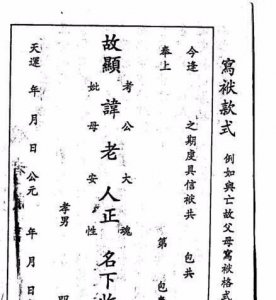 寫袱款式 例如與亡故父母寫袱格式
今逢 之期虔具信袱共 包共
奉上 第 包
考公大魂
故顯 諱 老 人正 名下
妣母安性
孝男
天運 年 月 日 公元 年 月 日